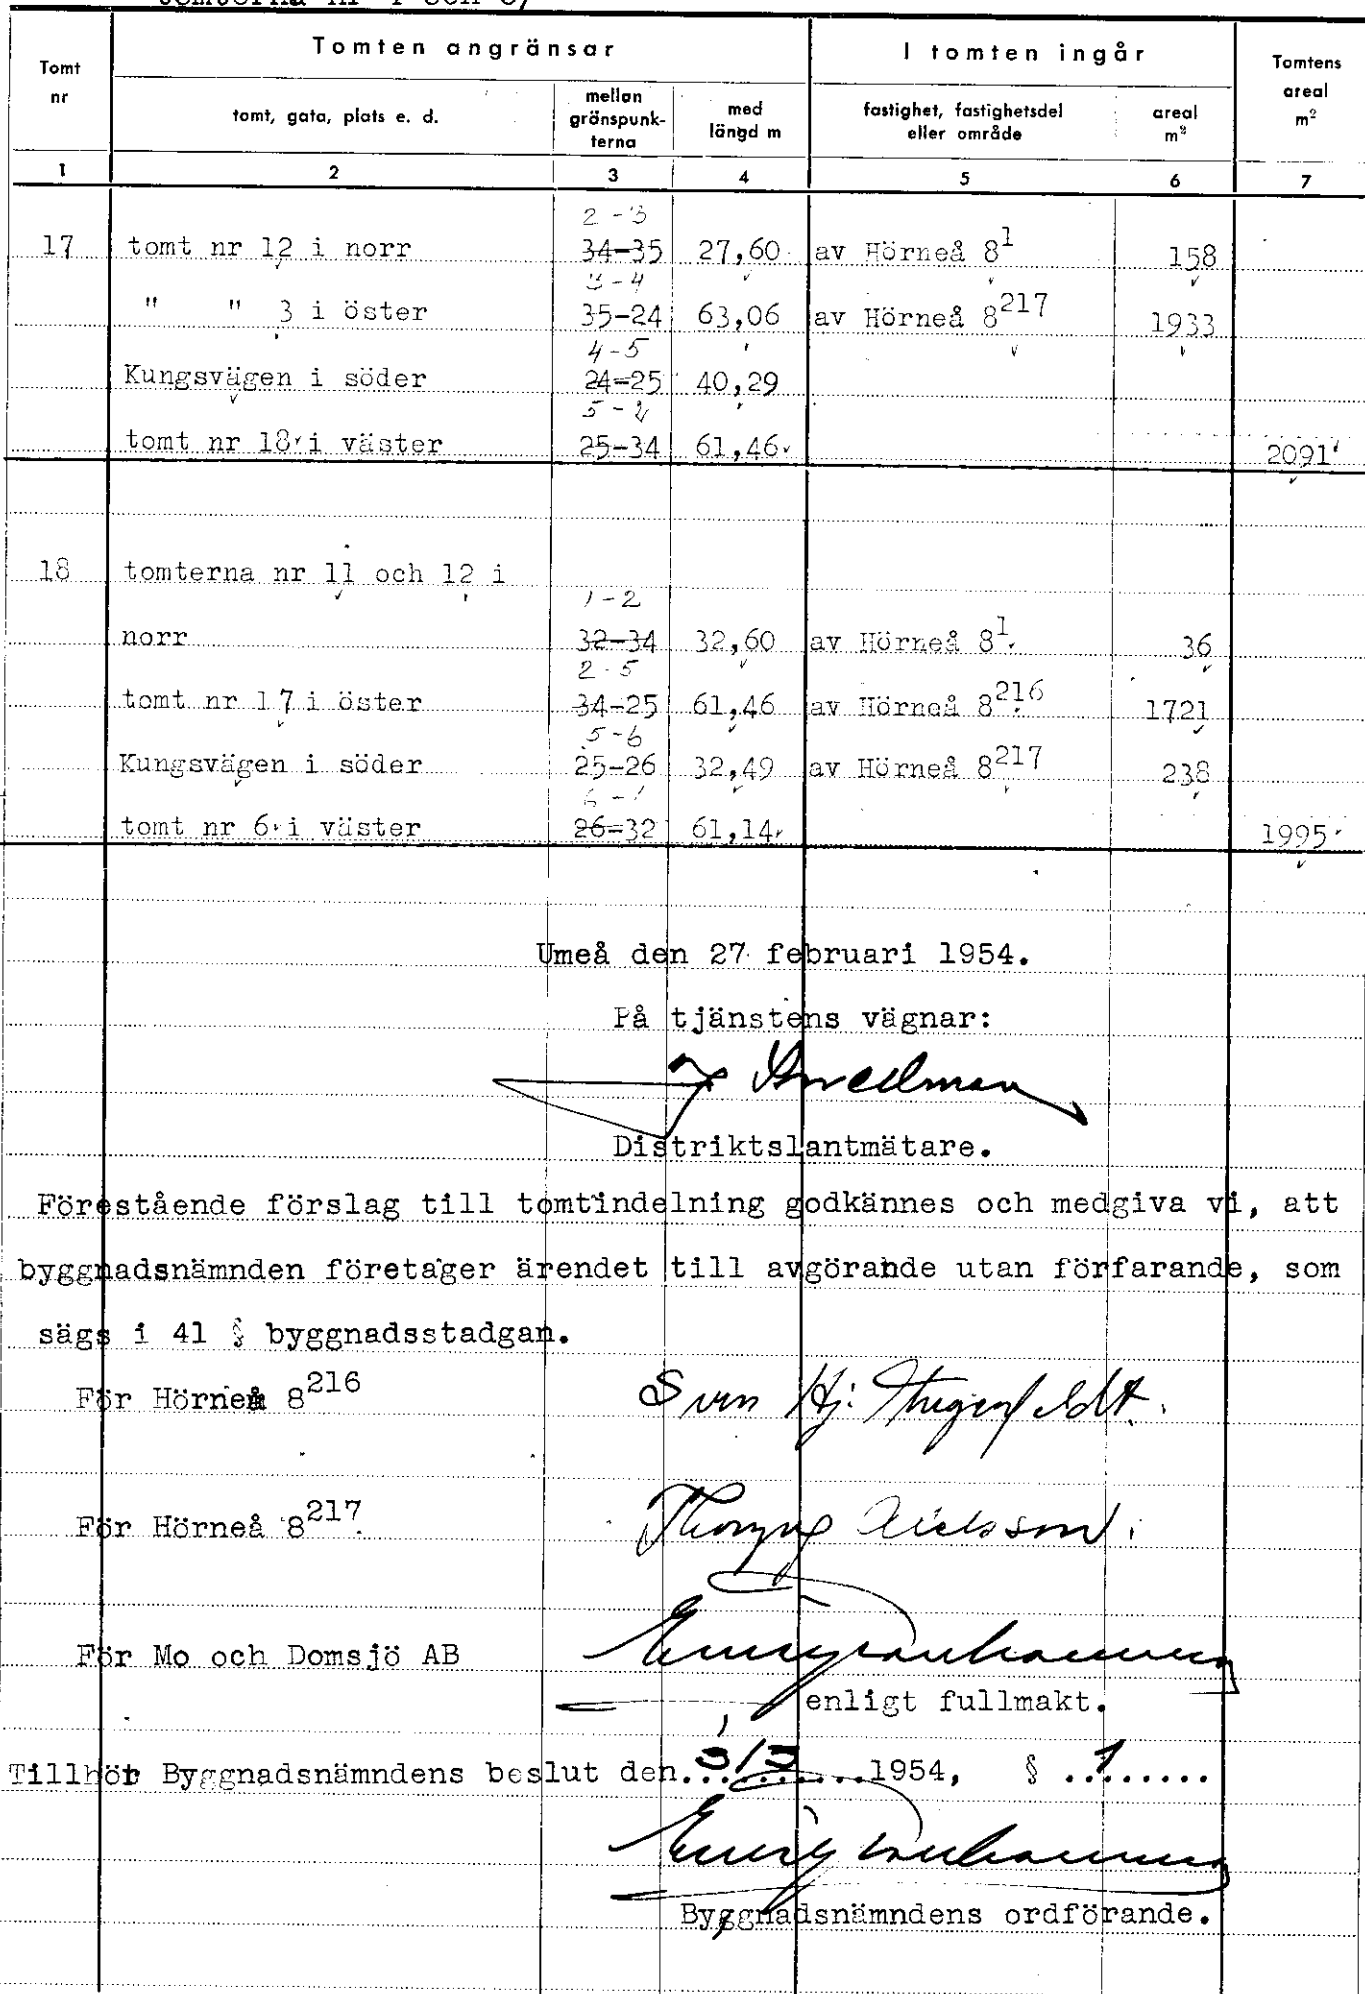 tomterna nr 4 och 6/
Tomt nr | Tomten angränsar | I tomten ingår | Tomtens areal m²
tomt, gata, plats e. d. | mellan gränspunk-terna | med längd m | fastighet, fastighetsdel eller område | areal m²
1 2 3 4 5 6 7
2-3
17 tomt nr 12 i norr 34-35 27,60 av Hörneå 8¹ 158
3-4
" " 3 i öster 35-24 63,06 av Hörneå 8²¹⁷ 1933
4-5
Kungsvägen i söder 24-25 40,29
5-2
tomt nr 18 i väster 25-34 61,46 2091
18 tomterna nr 11 och 12 i
1-2
norr 32-34 32,60 av Hörneå 8¹ 36
2-5
tomt nr 17 i öster 34-25 61,46 av Hörneå 8²¹⁶ 1721
5-6
Kungsvägen i söder 25-26 32,49 av Hörneå 8²¹⁷ 238
6-1
tomt nr 6 i väster 26-32 61,14 1995
Umeå den 27 februari 1954.
På tjänstens vägnar:
Distriktslantmätare.
Förestående förslag till tomtindelning godkännes och medgiva vi, att
byggnadsnämnden företager ärendet till avgörande utan förfarande, som
sägs i 41 § byggnadsstadgan.
För Hörneå 8²¹⁶ Sven Hj.
För Hörneå 8²¹⁷
För Mo och Domsjö AB
enligt fullmakt.
Tillhör Byggnadsnämndens beslut den 3/3 1954, § 1
Byggnadsnämndens ordförande.